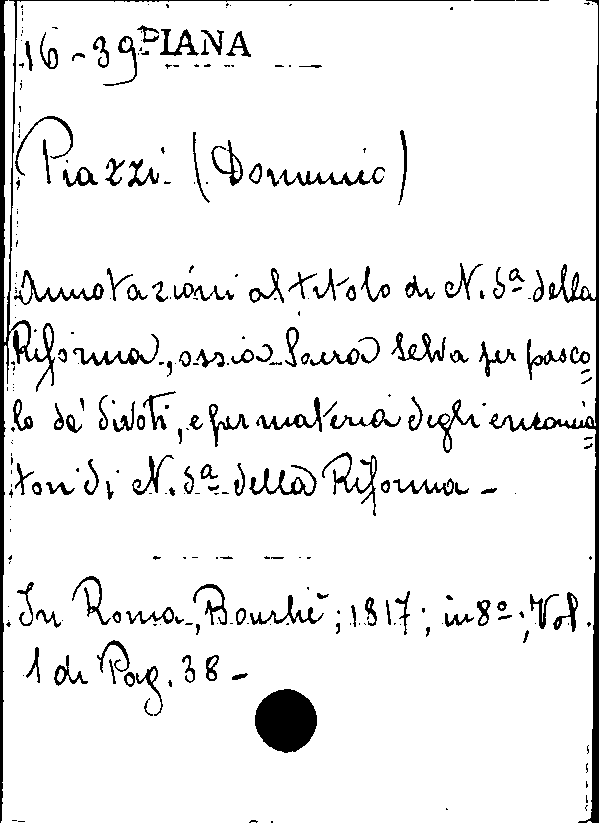 16-39 PIANA
Piazzi (Domenico)
Annotazioni al titolo di N. Sª della
Riforma, ossia Sacra Selva per pasco=
lo de' divoti, e per materia degli encomia=
tori di N. Sª della Riforma -
In Roma, Bourliè; 1817; in 8º; Vol.
1 di Pag. 38 -